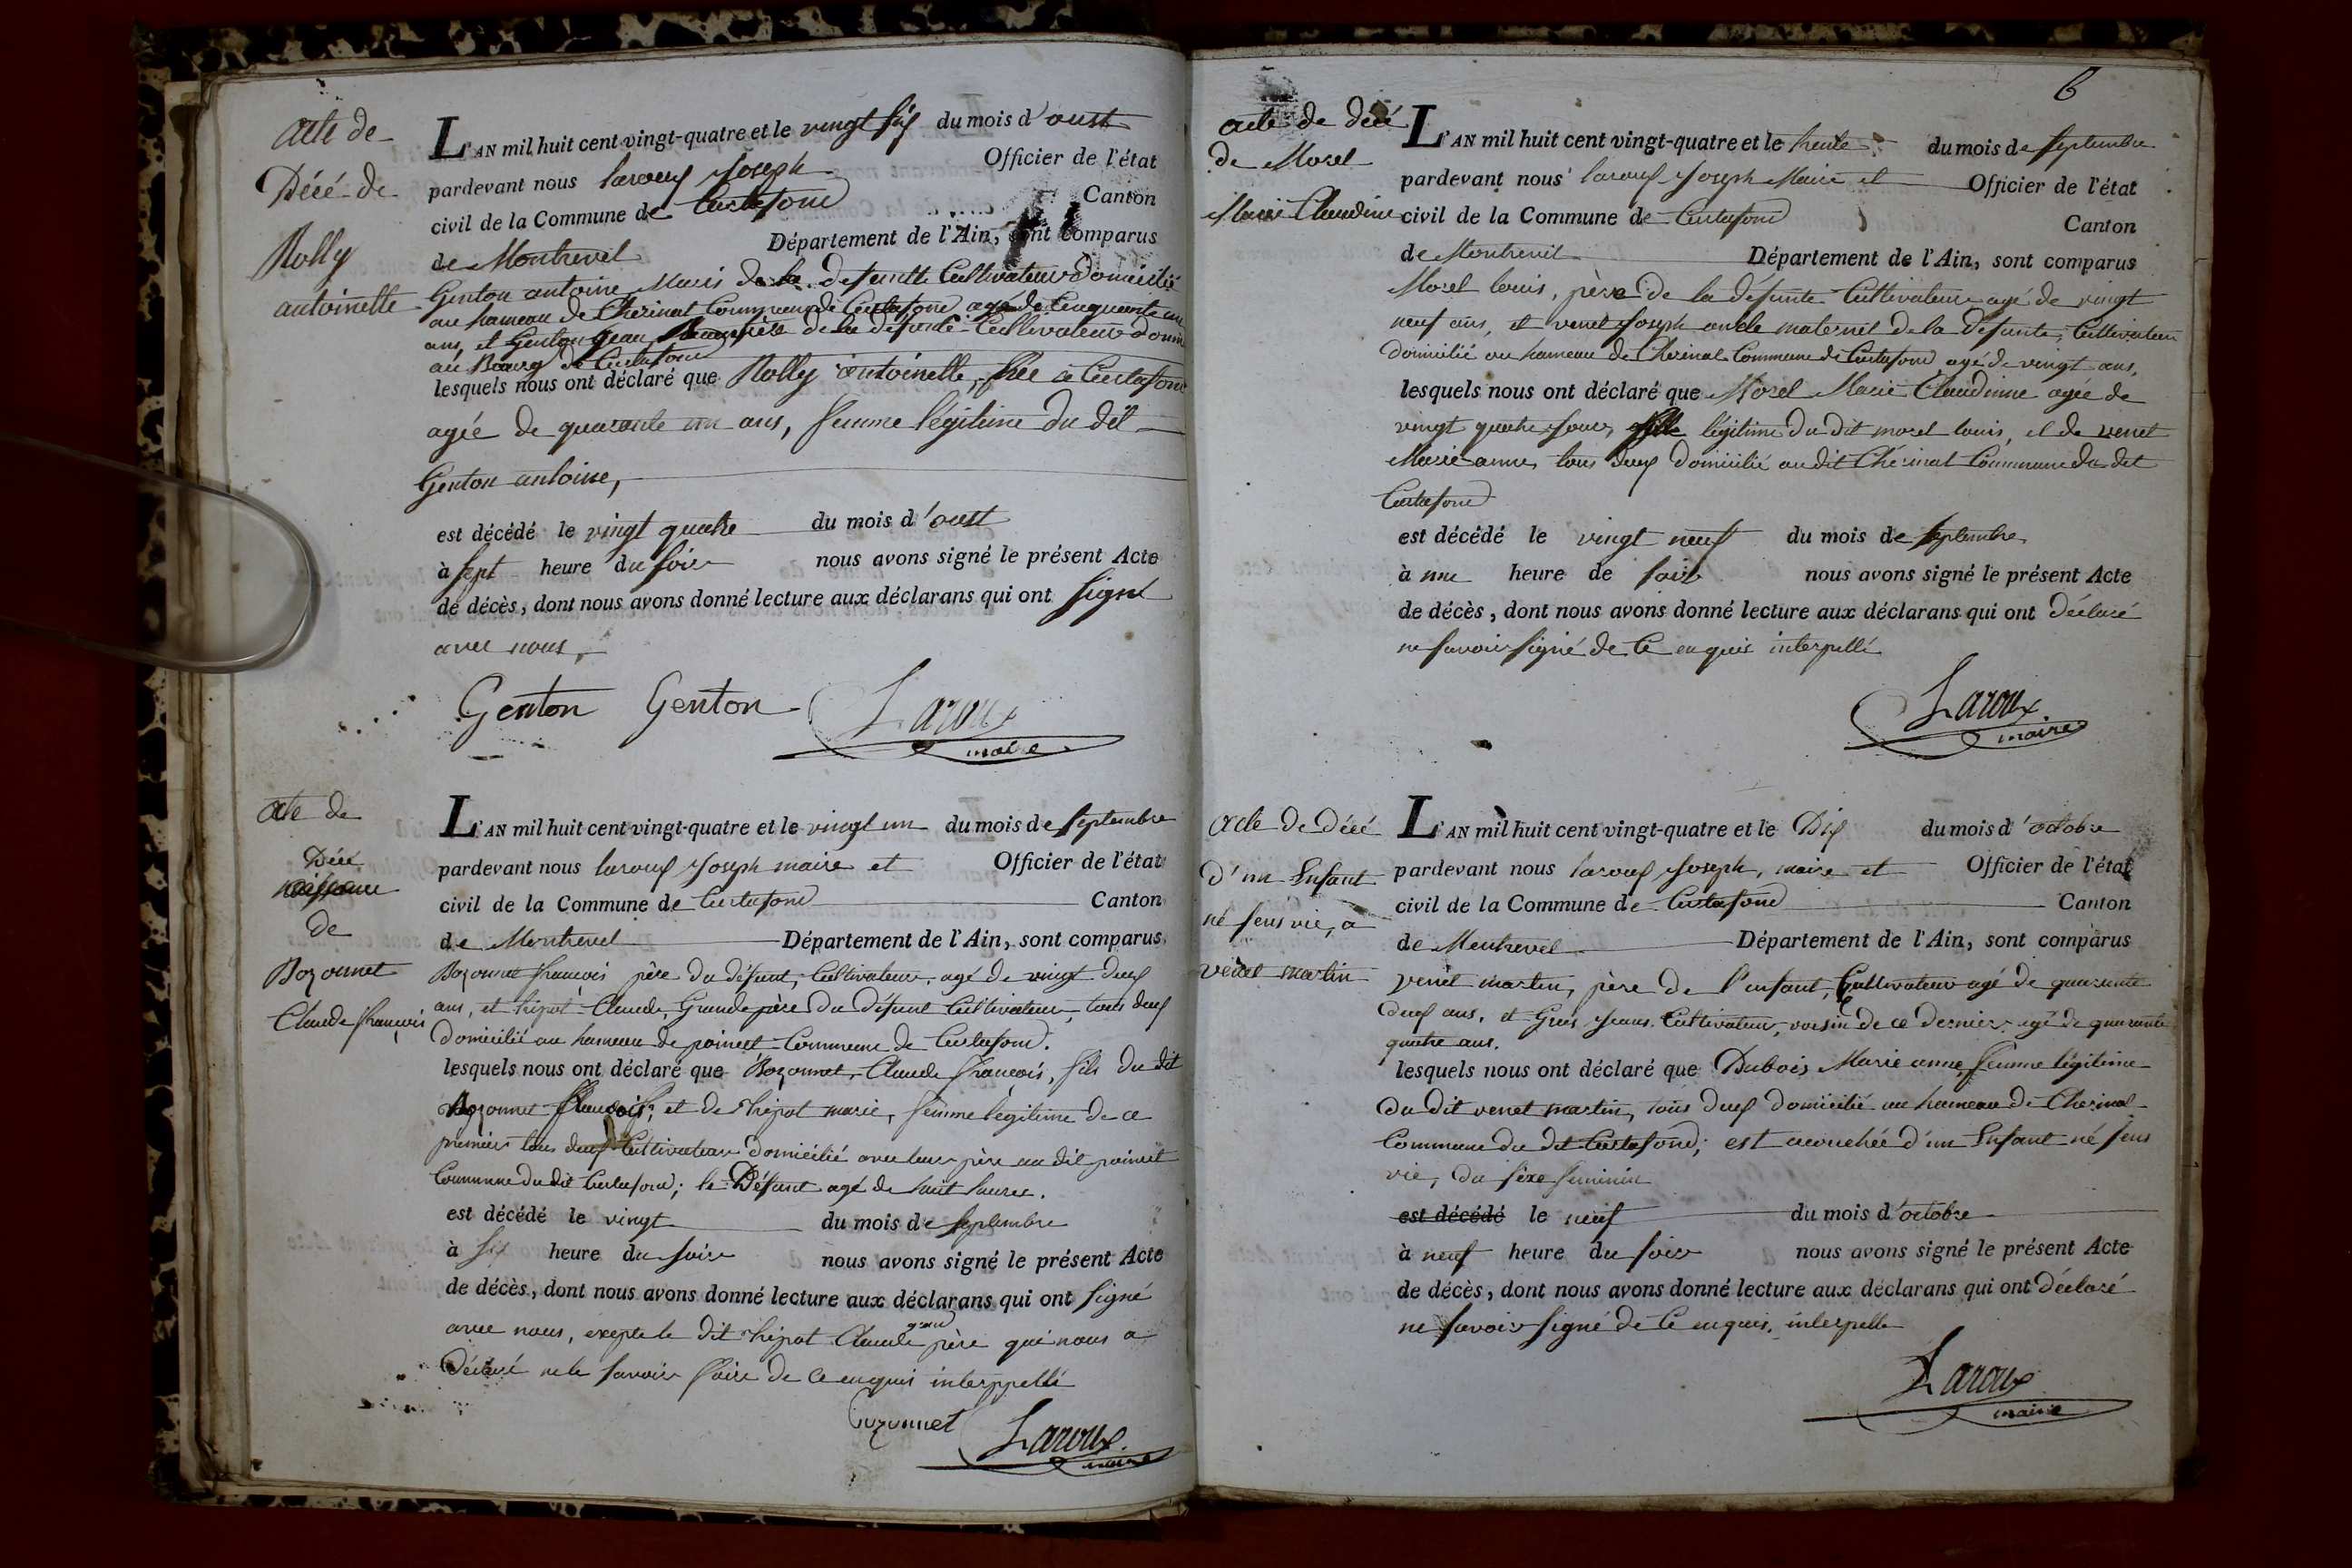 acte de
Décé de
Rolly
antoinette
L'AN mil huit cent vingt-quatre et le vingt six du mois d'oust
pardevant nous laroux Joseph Officier de l'état
civil de la Commune de Curtafond Canton
de Montrevel Département de l'Ain, sont comparus
Genton antoine Maris de la defunte Cultivateur domicilié
au hameau de Cherinal Commune de Curtafond agé de Cinquante un
ans, et Genton Jean Beaufrère de la défunte Cultivateur domi
au Bourg de Curtafond
lesquels nous ont déclaré que Rolly antoinette, née à Curtafond
agée de quarante un ans, femme légitime du dit
Genton antoine,
est décédé le vingt quatre du mois d'oust
à sept heure du soir nous avons signé le présent Acte
de décès, dont nous avons donné lecture aux déclarans qui ont signé
avec nous,
Genton Genton Laroux
maire
acte de
Décé
naissance
de
Bozonnet
Claude françois
L'AN mil huit cent vingt-quatre et le vingt un du mois de septembre
pardevant nous laroux Joseph maire et Officier de l'état
civil de la Commune de Curtafond Canton
de Montrevel Département de l'Ain, sont comparus
Bozonnet françois père du défunt, Cultivateur, agé de vingt deux
ans, et Chépot Claude, Grand père du défunt Cultivateur, tous deux
domicilié au hameau de poinset Commune de Curtafond.
lesquels nous ont déclaré que Bozonnet, Claude françois, fils du dit
Bozonnet françois, et de Chépot marie, femme légitime de ce
premier tous deux Cultivateur domicilié avec leur père au dit poinset
Commune du dit Curtafond; le Défunt agé de huit heures.
est décédé le vingt du mois de septembre
à six heure du soir nous avons signé le présent Acte
de décès, dont nous avons donné lecture aux déclarans qui ont signé
avec nous, excepte le dit Chépot Claude grand père qui nous a
déclaré ne le savoir faire de ce enquis interppellé
Bozonnet Laroux
maire
6
acte de décé
de Morel
Marie Claudine
L'AN mil huit cent vingt-quatre et le trente du mois de septembre
pardevant nous laroux Joseph Maire et Officier de l'état
civil de la Commune de Curtafond Canton
de Montrevil Département de l'Ain, sont comparus
Morel louis, père de la défunte Cultivateur agé de vingt
neuf ans, et venet Joseph oncle maternel de la défunte, Cultivateur
domicilié au hameau de Cherinal Commune de Curtafond agé de vingt ans,
lesquels nous ont déclaré que Morel Marie Claudinne agée de
vingt quatre jours, fille légitime du dit morel louis, et de venet
Marie anne, tous deux domicilié au dit Chérinal Commune du dit
Curtafond
est décédé le vingt neuf du mois de septembre
à une heure de soir nous avons signé le présent Acte
de décès, dont nous avons donné lecture aux déclarans qui ont déclaré
ne savoir signé de ce enquis interpellé
Laroux
maire
acte de décé
d'un Enfant
né sens vie, à
venet martin
L'AN mil huit cent vingt-quatre et le Dix du mois d'octobre
pardevant nous laroux Joseph, maire et Officier de l'état
civil de la Commune de Curtafond Canton
de Montrevel Département de l'Ain, sont comparus
venet martin, père de l'enfant, Cultivateur agé de quarante
deux ans, et Gros Jean Cultivateur, voisin de ce dernier, agé de quarante
quatre ans.
lesquels nous ont déclaré que Dubois Marie anne, femme légitime
du dit venet martin, tous deux domicilié au hameau de Cherinal
Commune du dit Curtafond; est acouchée d'un Enfant né sens
vie, du sexe feminin
est décédé le neuf du mois d'octobre
à neuf heure du soir nous avons signé le présent Acte
de décès, dont nous avons donné lecture aux déclarans qui ont déclaré
ne savoir signé de ce enquis, interpelle
Laroux
maire